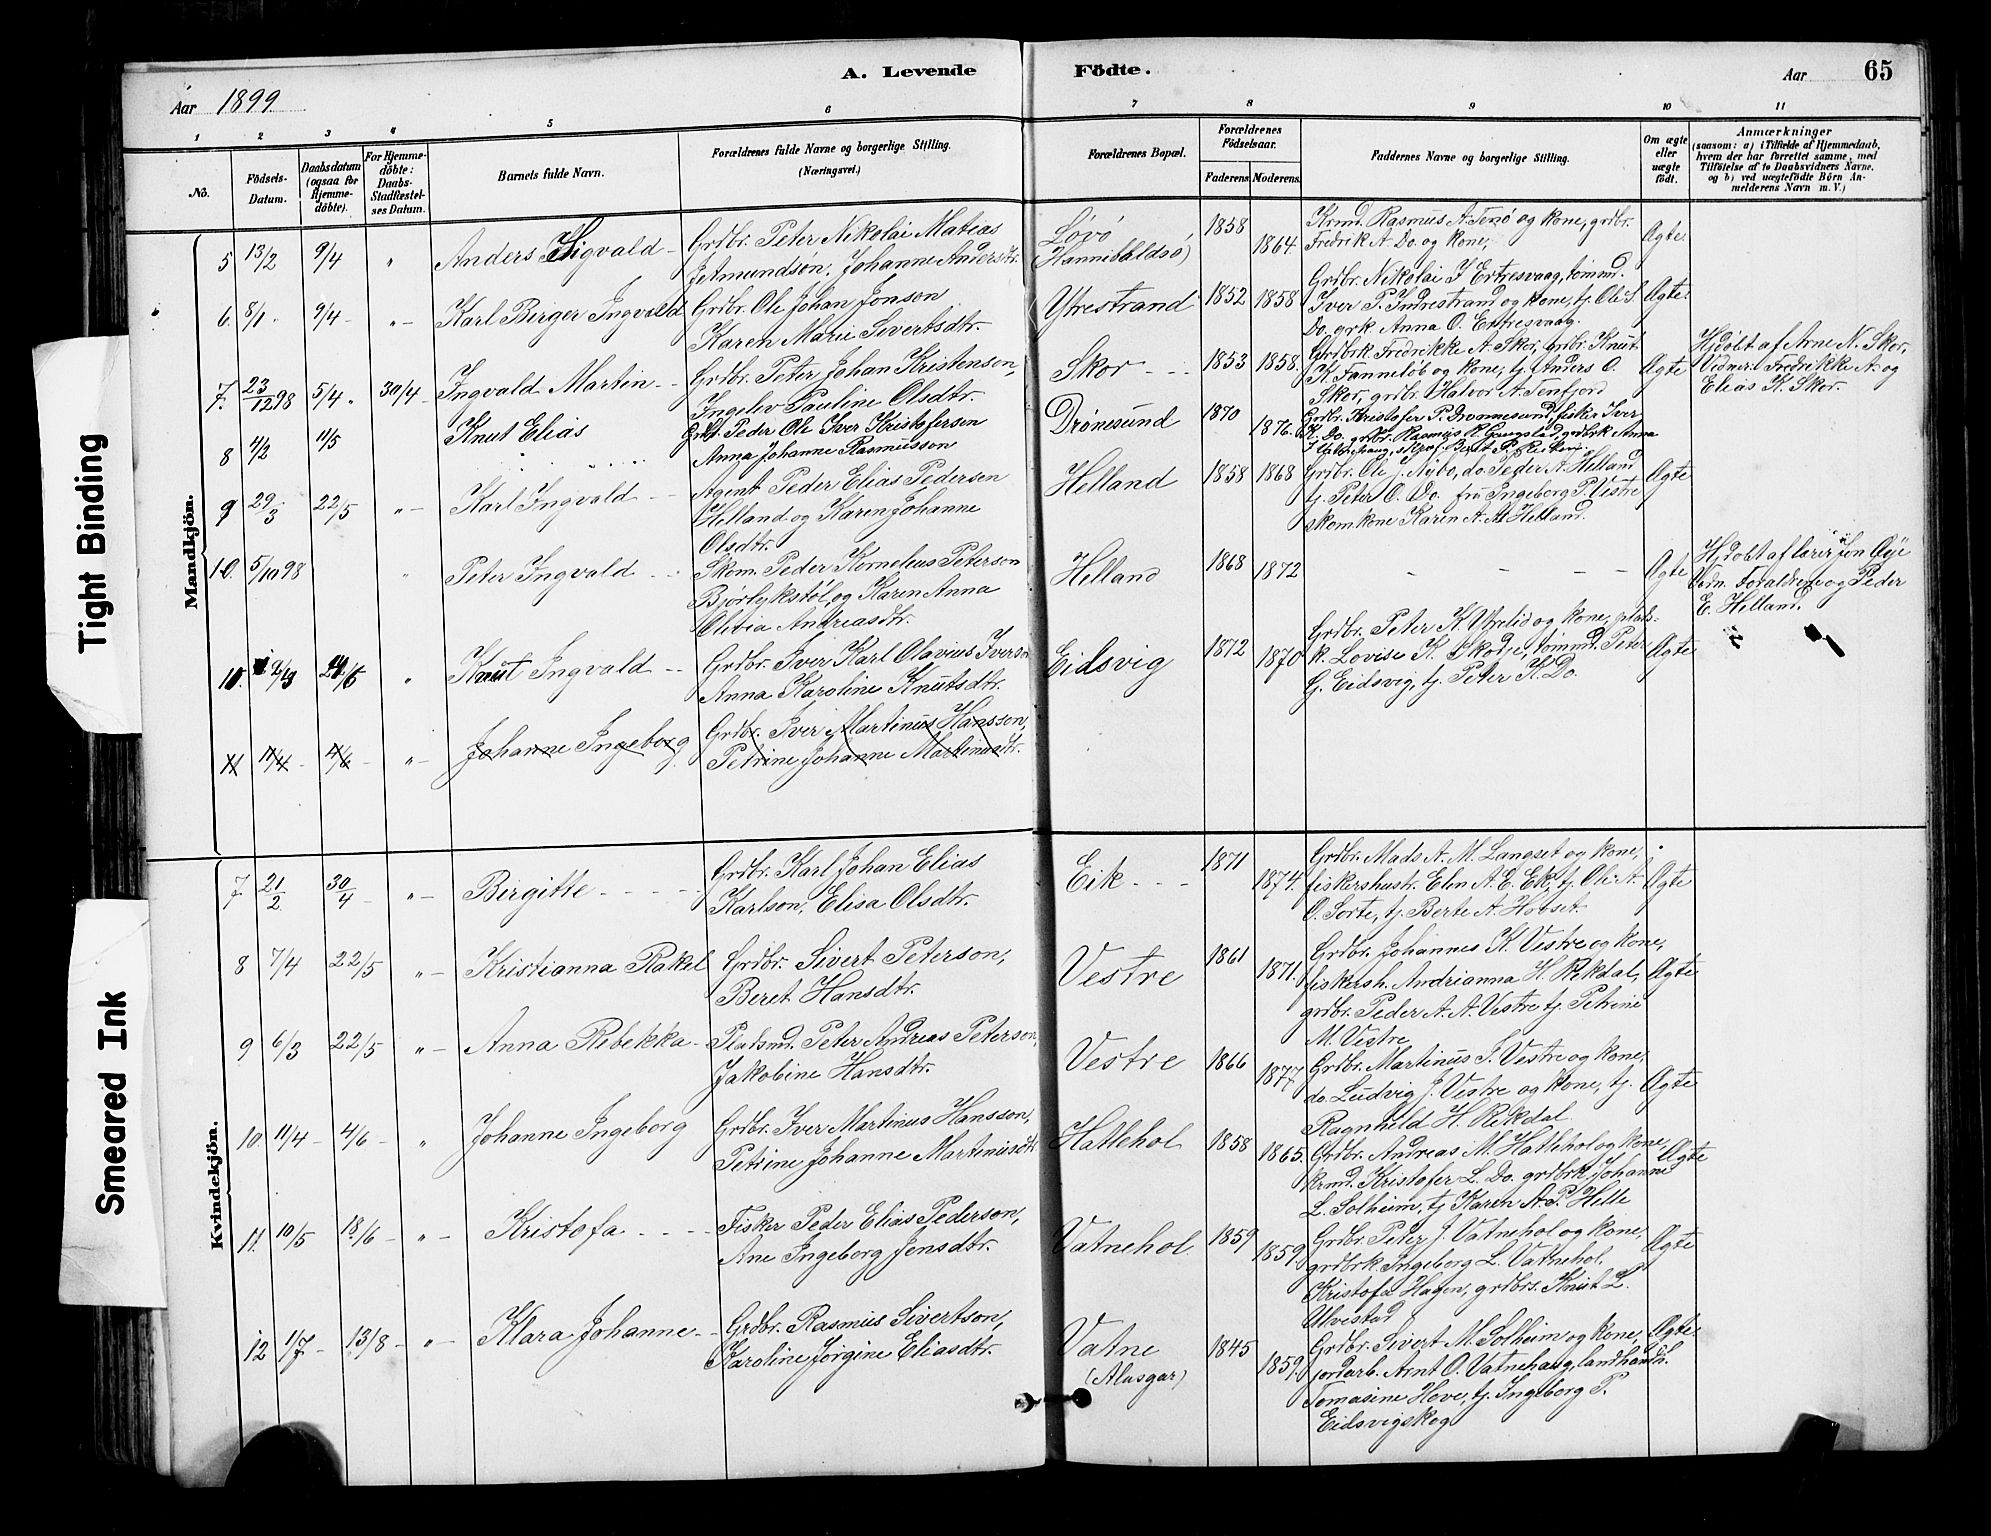 A. Levende Födte.
Aar 1899
Aar 65
1 2 3 4 5 6 7 8 9 10 11
No.
Födsels-Datum.
Daabsdatum (ogsaa for Hjemmedöbte).
For Hjemmedöbte: Daabs-Stadfæstelses Datum.
Barnets fulde Navn.
Forældrenes fulde Navne og borgerlige Stilling. (Næringsvei.)
Forældrenes Bopæl.
Forældrenes Födselsaar.
Faderens. Moderens.
Faddernes Navne og borgerlige Stilling.
Om ægte eller uægte födt.
Anmærkninger
(saasom: a) i Tilfælde af Hjemmedaab, hvem der har forrettet samme, med Tilföielse af to Daabsvidners Navne. og b) ved uægtefödte Börn Anmelderens Navn m. V.)
Tight Binding
Smeared Ink
Mandkjön.
5 13/2 9/4 " Anders Sigvald
Grdbr. Peter Nikolai Matias
Amundsøn, Johanne Andersdtr.
Løvø
(Hannibaldsø)
1858 1864
Krmd. Rasmus A. Tenø og kone, grdbr.
Fredrik A. Do. og kone,
Ægte
6. 8/1 9/4 " Karl Birger Ingvald
Grdbr. Ole Johan Jonson
Karen Marie Sivertsdtr.
Ytrestrand 1852 1858
Grdbr. Nikolai J. Ertresvaag, tømmd.
Iver P. Indrestrand og kone, tj. Ole S.
Do. grk Anna O. Ertresvaag.
Ægte
7. 23/12 98 5/4 30/4 Ingvald Martin
Grdbr. Peter Johan Kristenson,
Ingelev Pauline Olsdtr.
Skor 1853 1858
Grdbrk. Fredrikke A. Skor, grdbr. Knut
K. Tanneløb og kone, tj. Anders O.
Skor, grdbr. Halvor A. Tenfjord
Ægte
Hjdøbt af Arne N. Skor,
Vidner: Fredrikke A. og
Elias K. Skor.
8 4/2 11/5 Knut Elias
Peder Ole Iver Kristofersen
Anna Johanne Rasmusson
Drønesund 1870 1876
Grdbr. Kristofer P. Drønnesund, fisker Iver
K. Do. grdbr. Rasmus R. Gangstad, grdbrk Anna
9 29/3 22/5 " Karl Ingvald
Agent Peder Elias Pedersen
Helland og Karen Johanne
Olsdtr.
Helland 1858 1868
Grdbr. Ole J. Nybø, do. Peder A. Helland
tj. Peter O. Do. fru Ingeborg P. Vestre
skomkone Karen A. A. Helland.
Ægte
10. 5/10 98 " Peter Ingvald
Skom. Peder Kornelius Peterson
Bjørlykstøl, og Karen Anna
Olivia Andreasdtr.
Helland 1868 1872
Ægte
Hjdøbt af lærer Jon Øye
Vidn. Forældrene og Peder
E. Helland.
10. 24/5 " Knut Ingvald
Grdbr. Iver Karl Olavius Iverson
Anna Karoline Knutsdtr.
Eidsvig 1872 1870
Grdbr. Peter K. Ytrelid og kone, plads-
k. Lovise K. Skodje, tømmd. Peter
G. Eidsvig, tj. Peter K. Do.
Ægte
11 11/4 4/6 " Johanne Ingeborg
Grdbr. Iver Martinus Hansson,
Petrine Johanne Martinusdtr.
Kvindekjön.
7 21/2 30/4 " Birgitte
Grdbr. Karl Johan Elias
Karlson, Elisa Olsdtr.
Eik 1871 1874.
Grdbr. Mads A. M. Langset og kone,
fiskershustr. Elen A. E. Ek, tj. Ole A.
O. Sorte, tj. Berte A. Hovset.
Ægte
8 7/4 22/5 " Kristianna Rakel
Grdbr. Sivert Peterson,
Beret Hansdtr.
Vestre 1861 1871.
Grdbr. Johannes K. Vestre og kone,
fiskersh. Andrianna H. Rekdal,
grdbr. Peder A. A. Vestre, tj. Petrine
M. Vestre
Ægte
9 6/3 22/5 " Anna Rebekka
Pladsmd. Peter Andreas Peterson,
Jakobine Hansdtr.
Vestre 1866 1877
Grdbr. Martinus S. Vestre og kone,
do. Ludvig J. Vestre og kone, tj.
Ragnhild H. Rekdal
Ægte
10. 11/4 4/6 " Johanne Ingeborg
Grdbr. Iver Martinus Hansson,
Petrine Johanne Martinusdtr.
Hatlehol 1858 1865.
Grdbr. Andreas M. Hatlehol og kone,
krmd. Kristofer L. Do. grdbrk. Johanne
L. Solheim, tj. Karen A. P. Helle
Ægte
11. 10/5 18/6 " Kristofa
Fisker Peder Elias Pederson,
Ane Ingeborg Jensdtr.
Vatnehol 1859 1859
Grdbr. Peter J. Vatnehol og kone,
grdbrk. Ingeborg L. Vatnehol,
Kristofa Hagen, grdbrs. Knut L.
Ulvestad
Ægte
12 1/7 13/8 " Klara Johanne
Grdbr. Rasmus Sivertson,
Karoline Jørgine Eliasdtr.
Vatne
(Alusgar)
1845 1859
Grdbr. Sivert M. Solheim og kone,
jordarb. Arnt O. Vatnehaug, landhandl.
Tomasine Hove, tj. Ingeborg P.
Eidsvigskog
Ægte